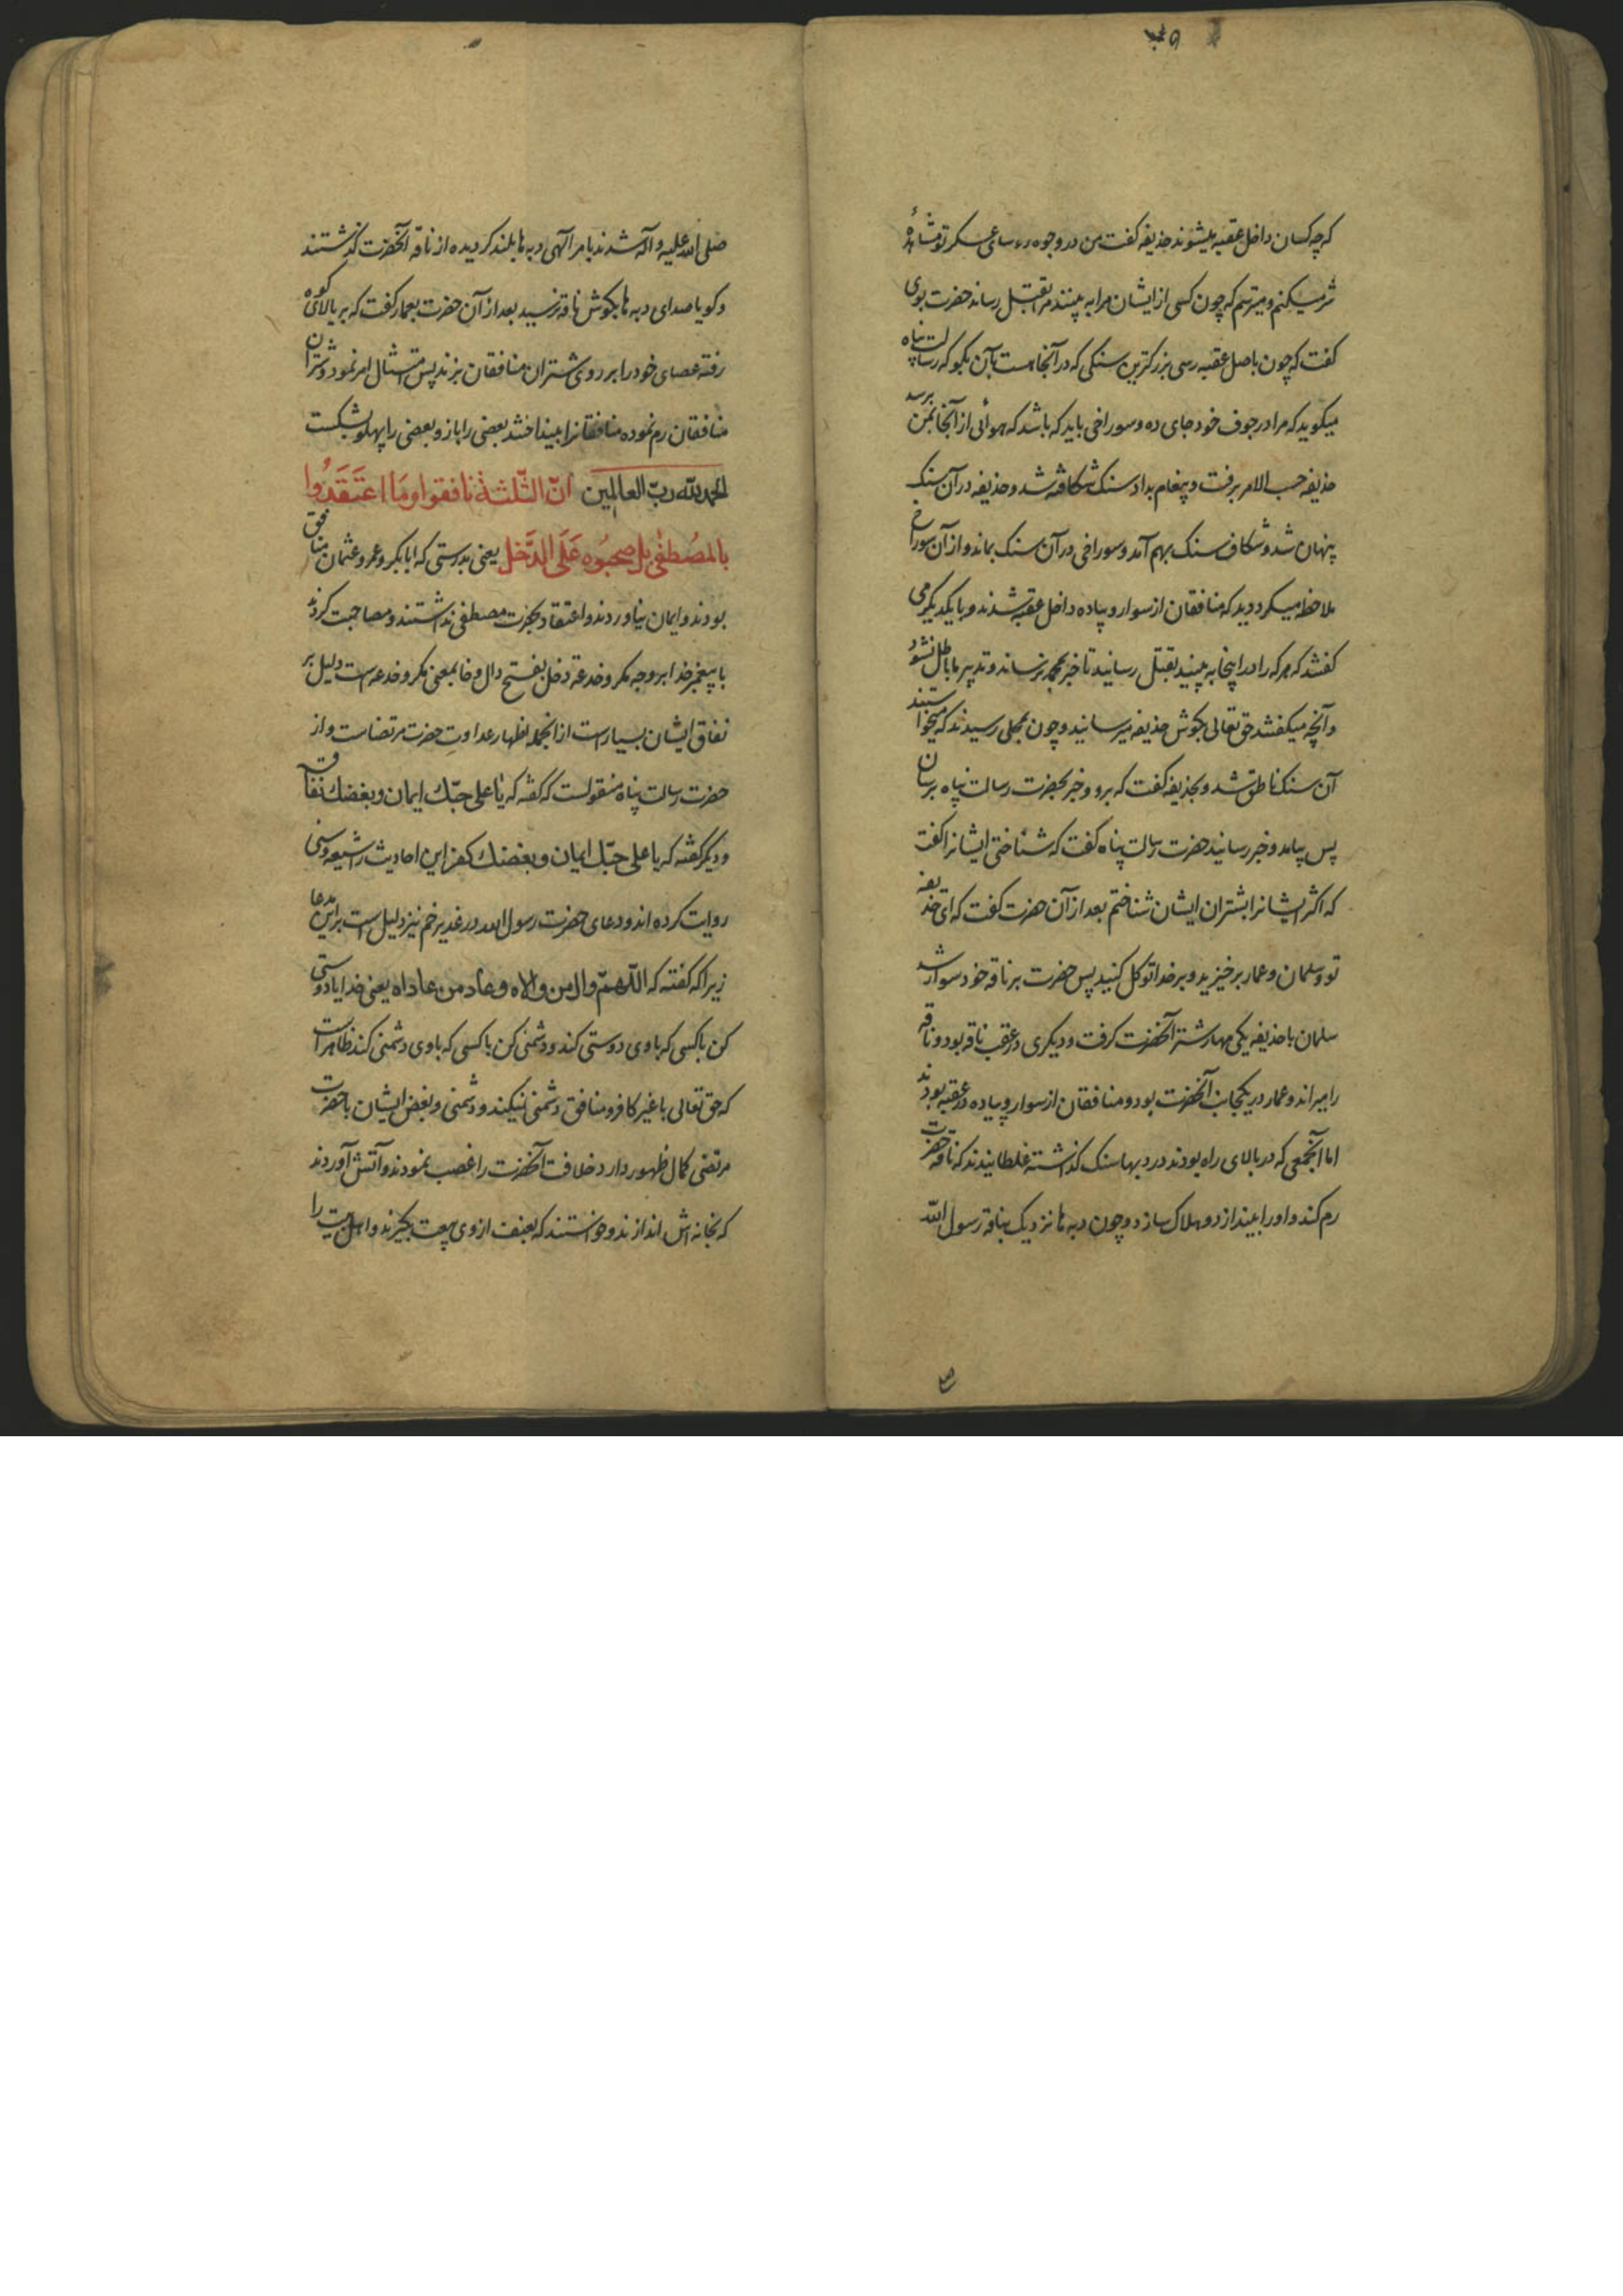 که چه کسان داخل عقبه میشوند حذیفه کفت من در وجوه رؤسای عسکر تو مشاهدهٔ
شر میکنم و میترسم که چون کسی از ایشان مرا به بیند مرا بقتل رساند حضرت بوی
کفت که چون باصل عقبه رسی بزرکترین سنکی که در آنجا هست بآن بکو که رسالت پناه
میکوید که مرا در جوف خود جای ده و سوراخی باید که باشد که هوائی از آنجا بمن برسد
حذیفه حسب الامر برفت و پیغام بداد سنک شکافته شد و حذیفه در آن سنک
پنهان شد و شکاف سنک بهم آمد و سوراخی در آن سنک بماند و از آن سوراخ
ملاحظه میکرد دید که منافقان از سوار و پیاده داخل عقبه شدند و با یکدیکر می
کفتند که هر که را در اینجا به بینید بقتل رسانید تا خبر بمحمد نرساند و تدبیر ما باطل نشود
و آنچه میکفتند حق تعالی بکوش حذیفه میرسانید و چون بمحلی رسیدند که میخواستند
آن سنک ناطق شد و بحذیفه کفت که برو و خبر بحضرت رسالت پناه برسان
پس بیامد و خبر رسانید حضرت رسالت پناه کفت که شناختی ایشانرا کفت
که اکثر ایشانرا بشتران ایشان شناختم بعد از آن حضرت کفت که ای حذیفه
تو و سلمان و عمار برخیزید و بر خدا توکل کنید پس حضرت بر ناقه خود سوار شد
سلمان با حذیفه یکی مهار شتر آنحضرت کرفت و دیکری در عقب ناقه بود و ناقه
را میراند و عمار در یکجانب آنحضرت بود و منافقان از سوار و پیاده در عقبه بودند
اما آنجمعی که در بالای راه بودند در دبها سنک کذاشته غلطانیدند که ناقه حضرت
رم کند و او را بیندازد و هلاک سازد و چون دبه ها نزدیک بناقه رسول الله
صلی الله علیه و آله شدند بامر الهی دبه ها بلند کردیده از ناقه آنحضرت کذشتند
و کویا صدای دبه ها بکوش ناقه نرسید بعد از آن حضرت بعمار کفت که بر بالای کوه
رفته عصای خود را بر روی شتران منافقان بزند پس امتثال امر نمود و شتران
منافقان رم نموده منافقانرا بینداختند بعضی را بازو و بعضی را پهلو بشکست
الحمد لله رب العالمین انّ الثّلثة نافقوا وما اعتقدوا
بالمصطفی بل صحبوه علی الدّخل یعنی بدرستی که ابابکر و عمر و عثمان منافق
بودند و ایمان نیاوردند و اعتقاد بحضرت مصطفی نداشتند و مصاحبت کردند
با پیغمبر خدا بر وجه مکر و خدعه دخل بفتح دال و خا بمعنی مکر و خدعه است دلیل بر
نفاق ایشان بسیار است از انجمله اظهار عداوت حضرت مرتضاست و از
حضرت رسالت پناه منقولست که کفته که یا علی حبّک ایمان و بغضک نفاق
و دیکر کفته که یا علی حبّک ایمان و بغضک کفر این احادیث را شیعه و سنی
روایت کرده اند و دعای حضرت رسول الله در غدیر خم نیز دلیل است بر این مدعا
زیرا که کفته که اللّهمّ وال من والاه و عاد من عاداه یعنی خدایا دوستی
کن با کسی که با وی دوستی کند و دشمنی کن با کسی که با وی دشمنی کند ظاهر است
که حق تعالی با غیر کافر و منافق دشمنی نمیکند و دشمنی و بغض ایشان با حضرت
مرتضی کمال ظهور دارد خلافت آنحضرت را غصب نمودند و آتش آوردند
که بخانه اش اندازند و خواستند که بعنف از وی بیعت بکیرند و اهل بیت را